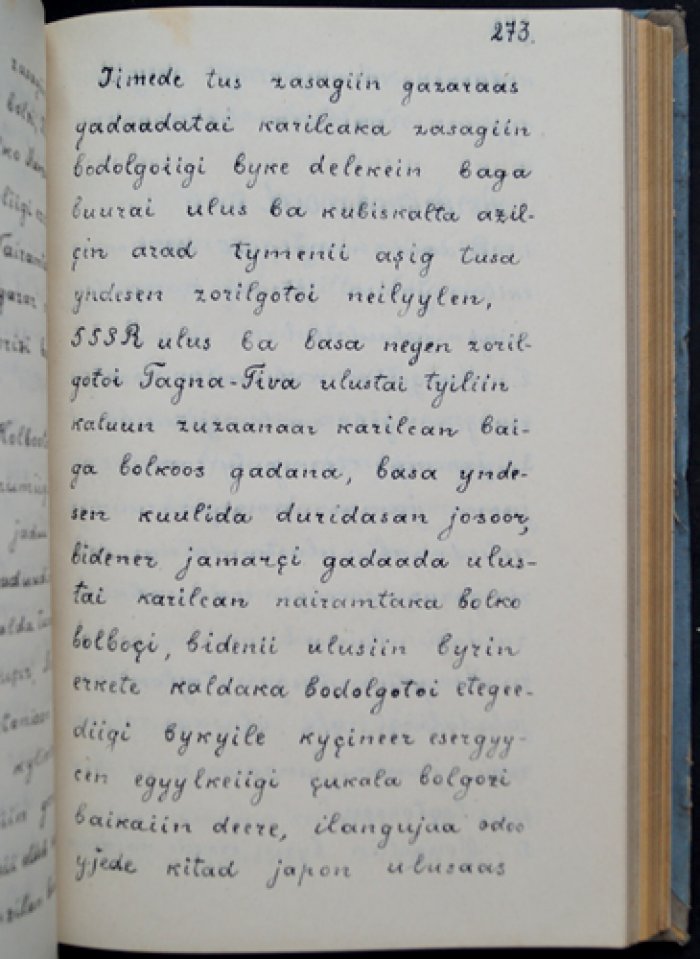 273.
Iimede tus zasagiin gazaraas
gadaadatai karilcaka zasagiin
bodolgoiigi byke delekein baga
buurai ulus ba kubiskalta azil-
çin arad tymenii aşig tusa
yndesen zorilgotoi neilyylen,
SSSR ulus ba basa negen zoril-
gotoi Tagna-Tiva ulustai tyiliin
kaluun zuzaanaar karilcan bai-
ga bolkoos gadana, basa ynde-
sen kuulida duridasan josoor,
bidener jamarçi gadaada ulus-
tai karilcan nairamtaka bolko
bolboçi, bidenii ulusiin byrin
erkete kaldaka bodolgotoi etegee-
diigi bykyile kyçineer esergyy-
cen egyylkeiigi çukala bolgozi
baikaiin deere, ilangujaa odoo
yjede kitad japon ulusaas